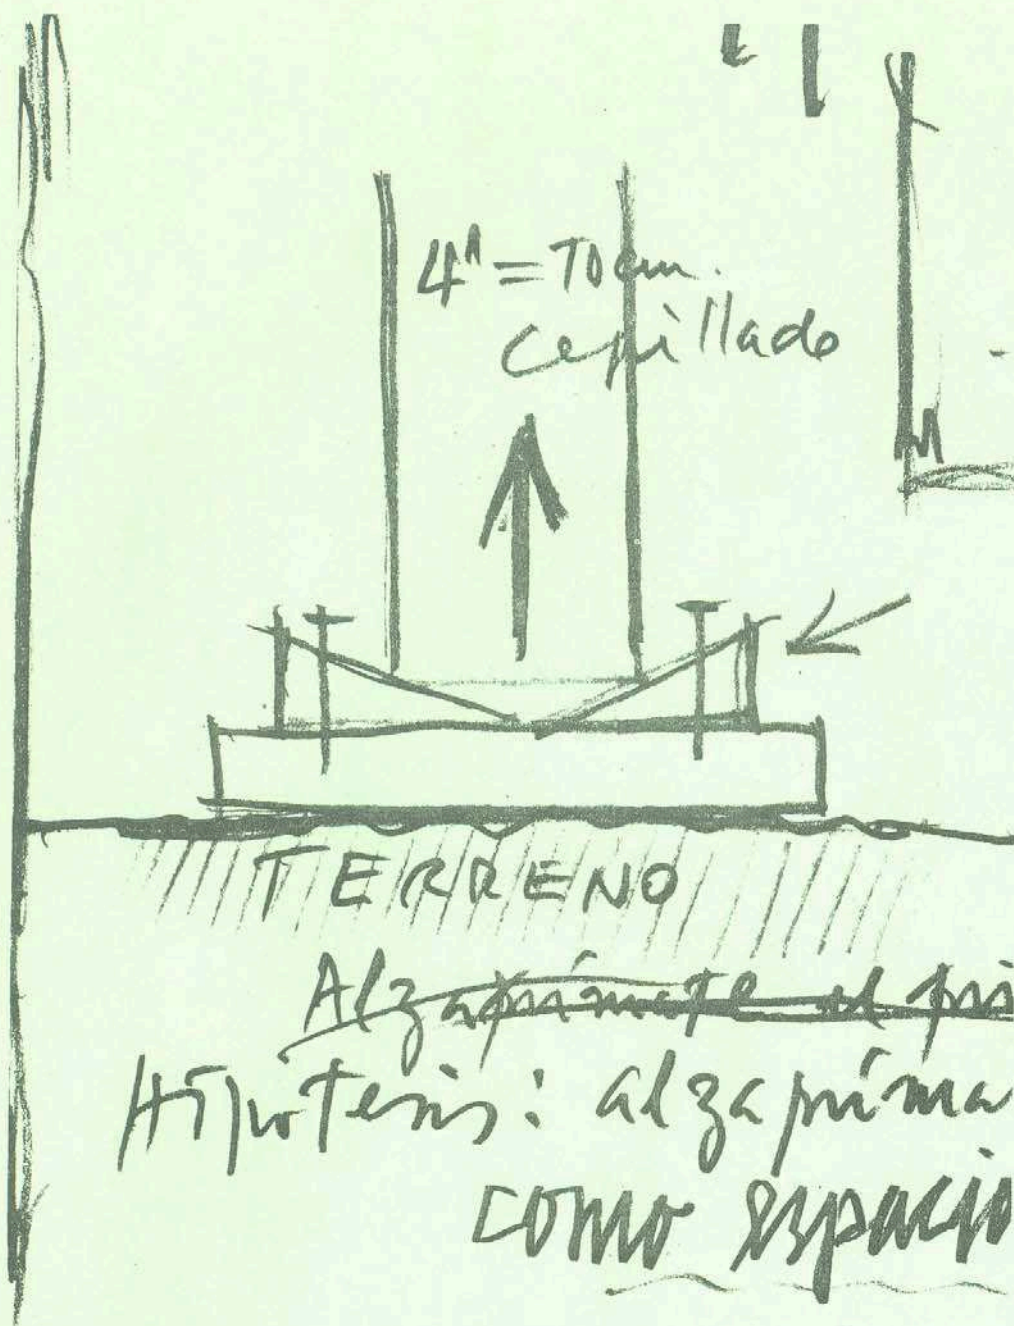 4" = 10 cm.
Cepillado
TERRENO
Alzaprímate el pri
Hipótesis: alzaprima
como espacio